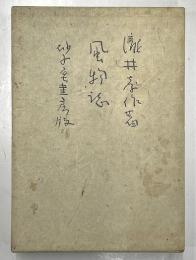 瀧井孝作著
風物誌
砂子屋書房版